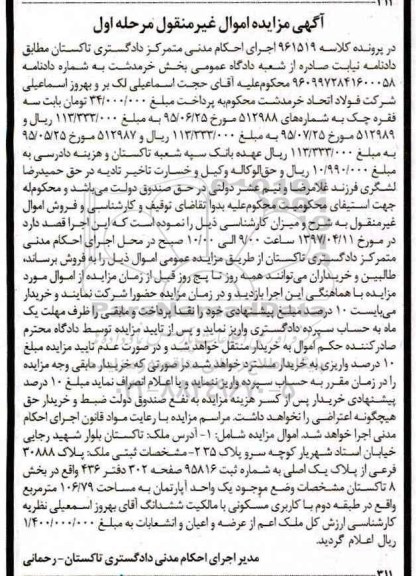 ۳۱۱
آگهی مزایده اموال غیرمنقول مرحله اول
در پرونده کلاسه ۹۶۱۵۱۹ اجرای احکام مدنی متمرکز دادگستری تاکستان مطابق
دادنامه نیابت صادره از شعبه دادگاه عمومی بخش خرمدشت به شماره دادنامه
۹۶۰۹۹۷۲۸۴۱۶۰۰۰۵۸ محکوم‌علیه آقای حجت اسماعیلی لک بر و بهروز اسماعیلی
شرکت فولاد اتحاد خرمدشت محکوم‌به پرداخت مبلغ ۳۴/۰۰۰/۰۰۰ تومان بابت سه
فقره چک به شماره‌های ۵۱۲۹۸۸ مورخ ۹۵/۰۶/۲۵ به مبلغ ۱۱۳/۳۳۳/۰۰۰ ریال و
۵۱۲۹۸۹ مورخ ۹۵/۰۷/۲۵ به مبلغ ۱۱۳/۳۳۳/۰۰۰ ریال و ۵۱۲۹۸۷ مورخ ۹۵/۰۵/۲۵
به مبلغ ۱۱۳/۳۳۳/۰۰۰ ریال عهده بانک سپه شعبه تاکستان و هزینه دادرسی به
مبلغ ۱۰/۹۹۰/۰۰۰ ریال و حق‌الوکاله وکیل و خسارت تاخیر تادیه در حق حمیدرضا
لشگری فرزند غلامرضا و نیم عشر دولتی در حق صندوق دولت می‌باشد و محکوم‌له
جهت استیفای محکوم‌به محکوم‌علیه بدوا تقاضای توقیف و کارشناسی و فروش اموال
غیرمنقول به شرح و میزان کارشناسی ذیل را نموده است که این اجرا قصد دارد
در مورخ ۱۳۹۷/۰۴/۱۱ ساعت ۹/۰۰ الی ۱۰/۰۰ صبح در محل اجرای احکام مدنی
متمرکز دادگستری تاکستان از طریق مزایده عمومی اموال ذیل را به فروش برساند،
طالبین و خریداران می‌توانند همه روز تا پنج روز قبل از زمان مزایده از اموال مورد
مزایده با هماهنگی این اجرا بازدید و در زمان مزایده حضورا شرکت نمایند و خریدار
می‌بایست ۱۰ درصد مبلغ پیشنهادی خود را نقدا پرداخت و مابقی را ظرف مهلت یک
ماه به حساب سپرده دادگستری واریز نماید و پس از تایید مزایده توسط دادگاه محترم
صادرکننده حکم اموال به خریدار منتقل خواهد شد و در صورت عدم تایید مزایده مبلغ
۱۰ درصد واریزی به خریدار مسترد خواهد شد در صورتی که خریدار مابقی وجه مزایده
را در زمان مقرر به حساب سپرده واریز ننماید و یا اعلام انصراف نماید مبلغ ۱۰ درصد
پیشنهادی خریدار پس از کسر هزینه مزایده به نفع صندوق دولت ضبط و خریدار حق
هیچگونه اعتراضی را نخواهد داشت. مراسم مزایده با رعایت مواد قانون اجرای احکام
مدنی اجرا خواهد شد. اموال مزایده شامل: ۱- آدرس ملک: تاکستان بلوار شهید رجایی
خیابان استاد شهریار کوچه سرو پلاک ۳۵ ۲-مشخصات ثبتی ملک: پلاک ۳۰۸۸۸
فرعی از پلاک یک اصلی به شماره ثبت ۹۵۸۱۶ صفحه ۳۰۲ دفتر ۴۳۶ واقع در بخش
۸ تاکستان مشخصات وضع موجود یک واحد آپارتمان به مساحت ۱۰۶/۷۹ مترمربع
واقع در طبقه دوم با کاربری مسکونی با مالکیت ششدانگ آقای بهروز اسمعیلی نظریه
کارشناسی ارزش کل ملک اعم از عرصه و اعیان و انشعابات به مبلغ ۱/۴۰۰/۰۰۰/۰۰۰
ریال اعلام گردید.
مدیر اجرای احکام مدنی دادگستری تاکستان-رحمانی
۳۱۱